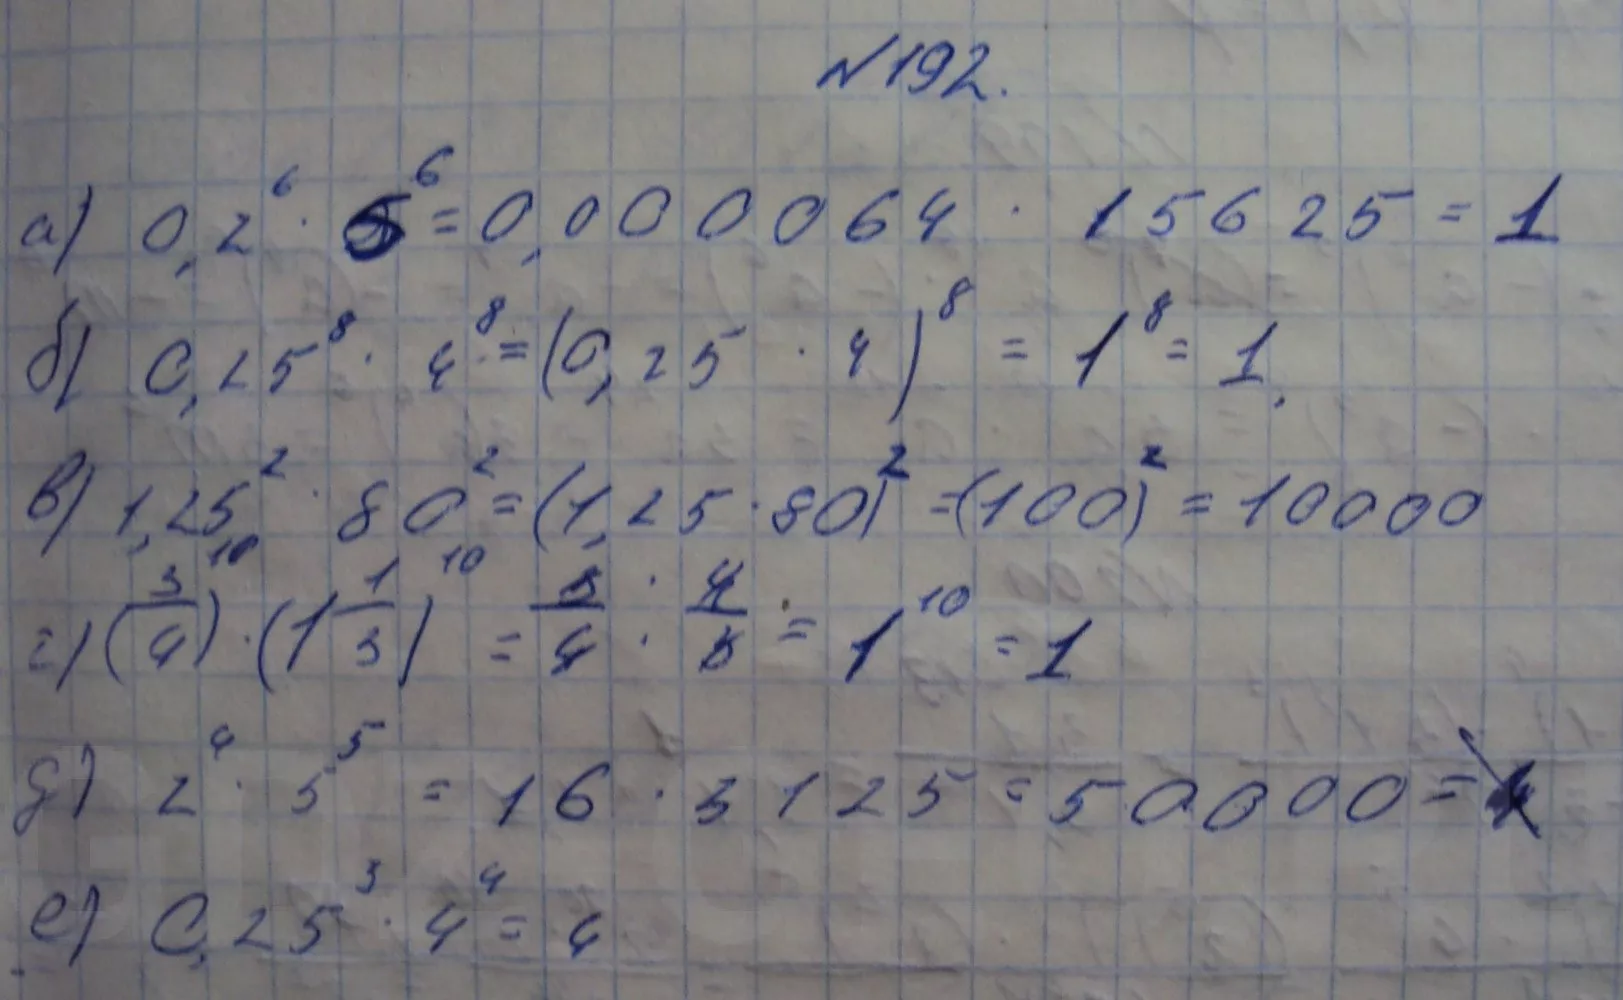 №192.
а) 0,2⁶ · 5⁶ = 0,000064 · 15625 = 1
б) 0,25⁸ · 4⁸ = (0,25 · 4)⁸ = 1⁸ = 1.
в) 1,25² · 80² = (1,25 · 80)² = (100)² = 10000
г) (3/4)¹⁰ · (1 1/3)¹⁰ = 3/4 · 4/3 = 1¹⁰ = 1
д) 2⁴ · 5⁵ = 16 · 3125 = 50000 =
е) 0,25³ · 4⁴ = 4